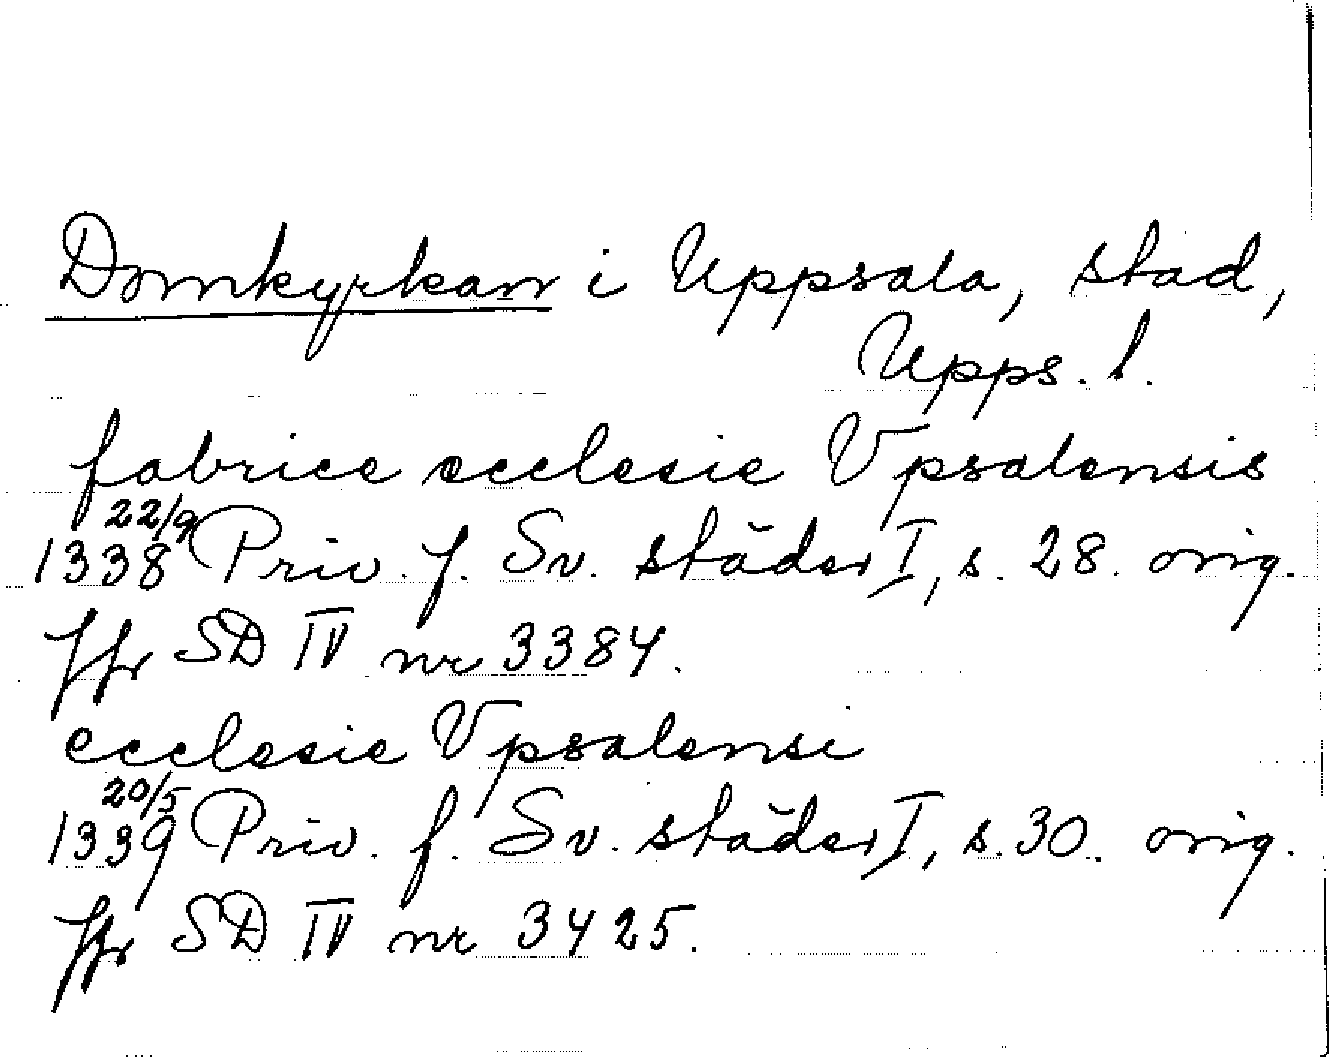 Domkyrkan i Uppsala, stad,
Upps. l.
fabrice ecclesie Vpsalensis
22/9
1338 Priv. f. Sv. städer I, s. 28. orig.
Jfr SD IV nr 3384.
ecclesie Vpsalensi
20/5
1339 Priv. f. Sv. städer I, s. 30. orig.
Jfr SD IV nr 3425.